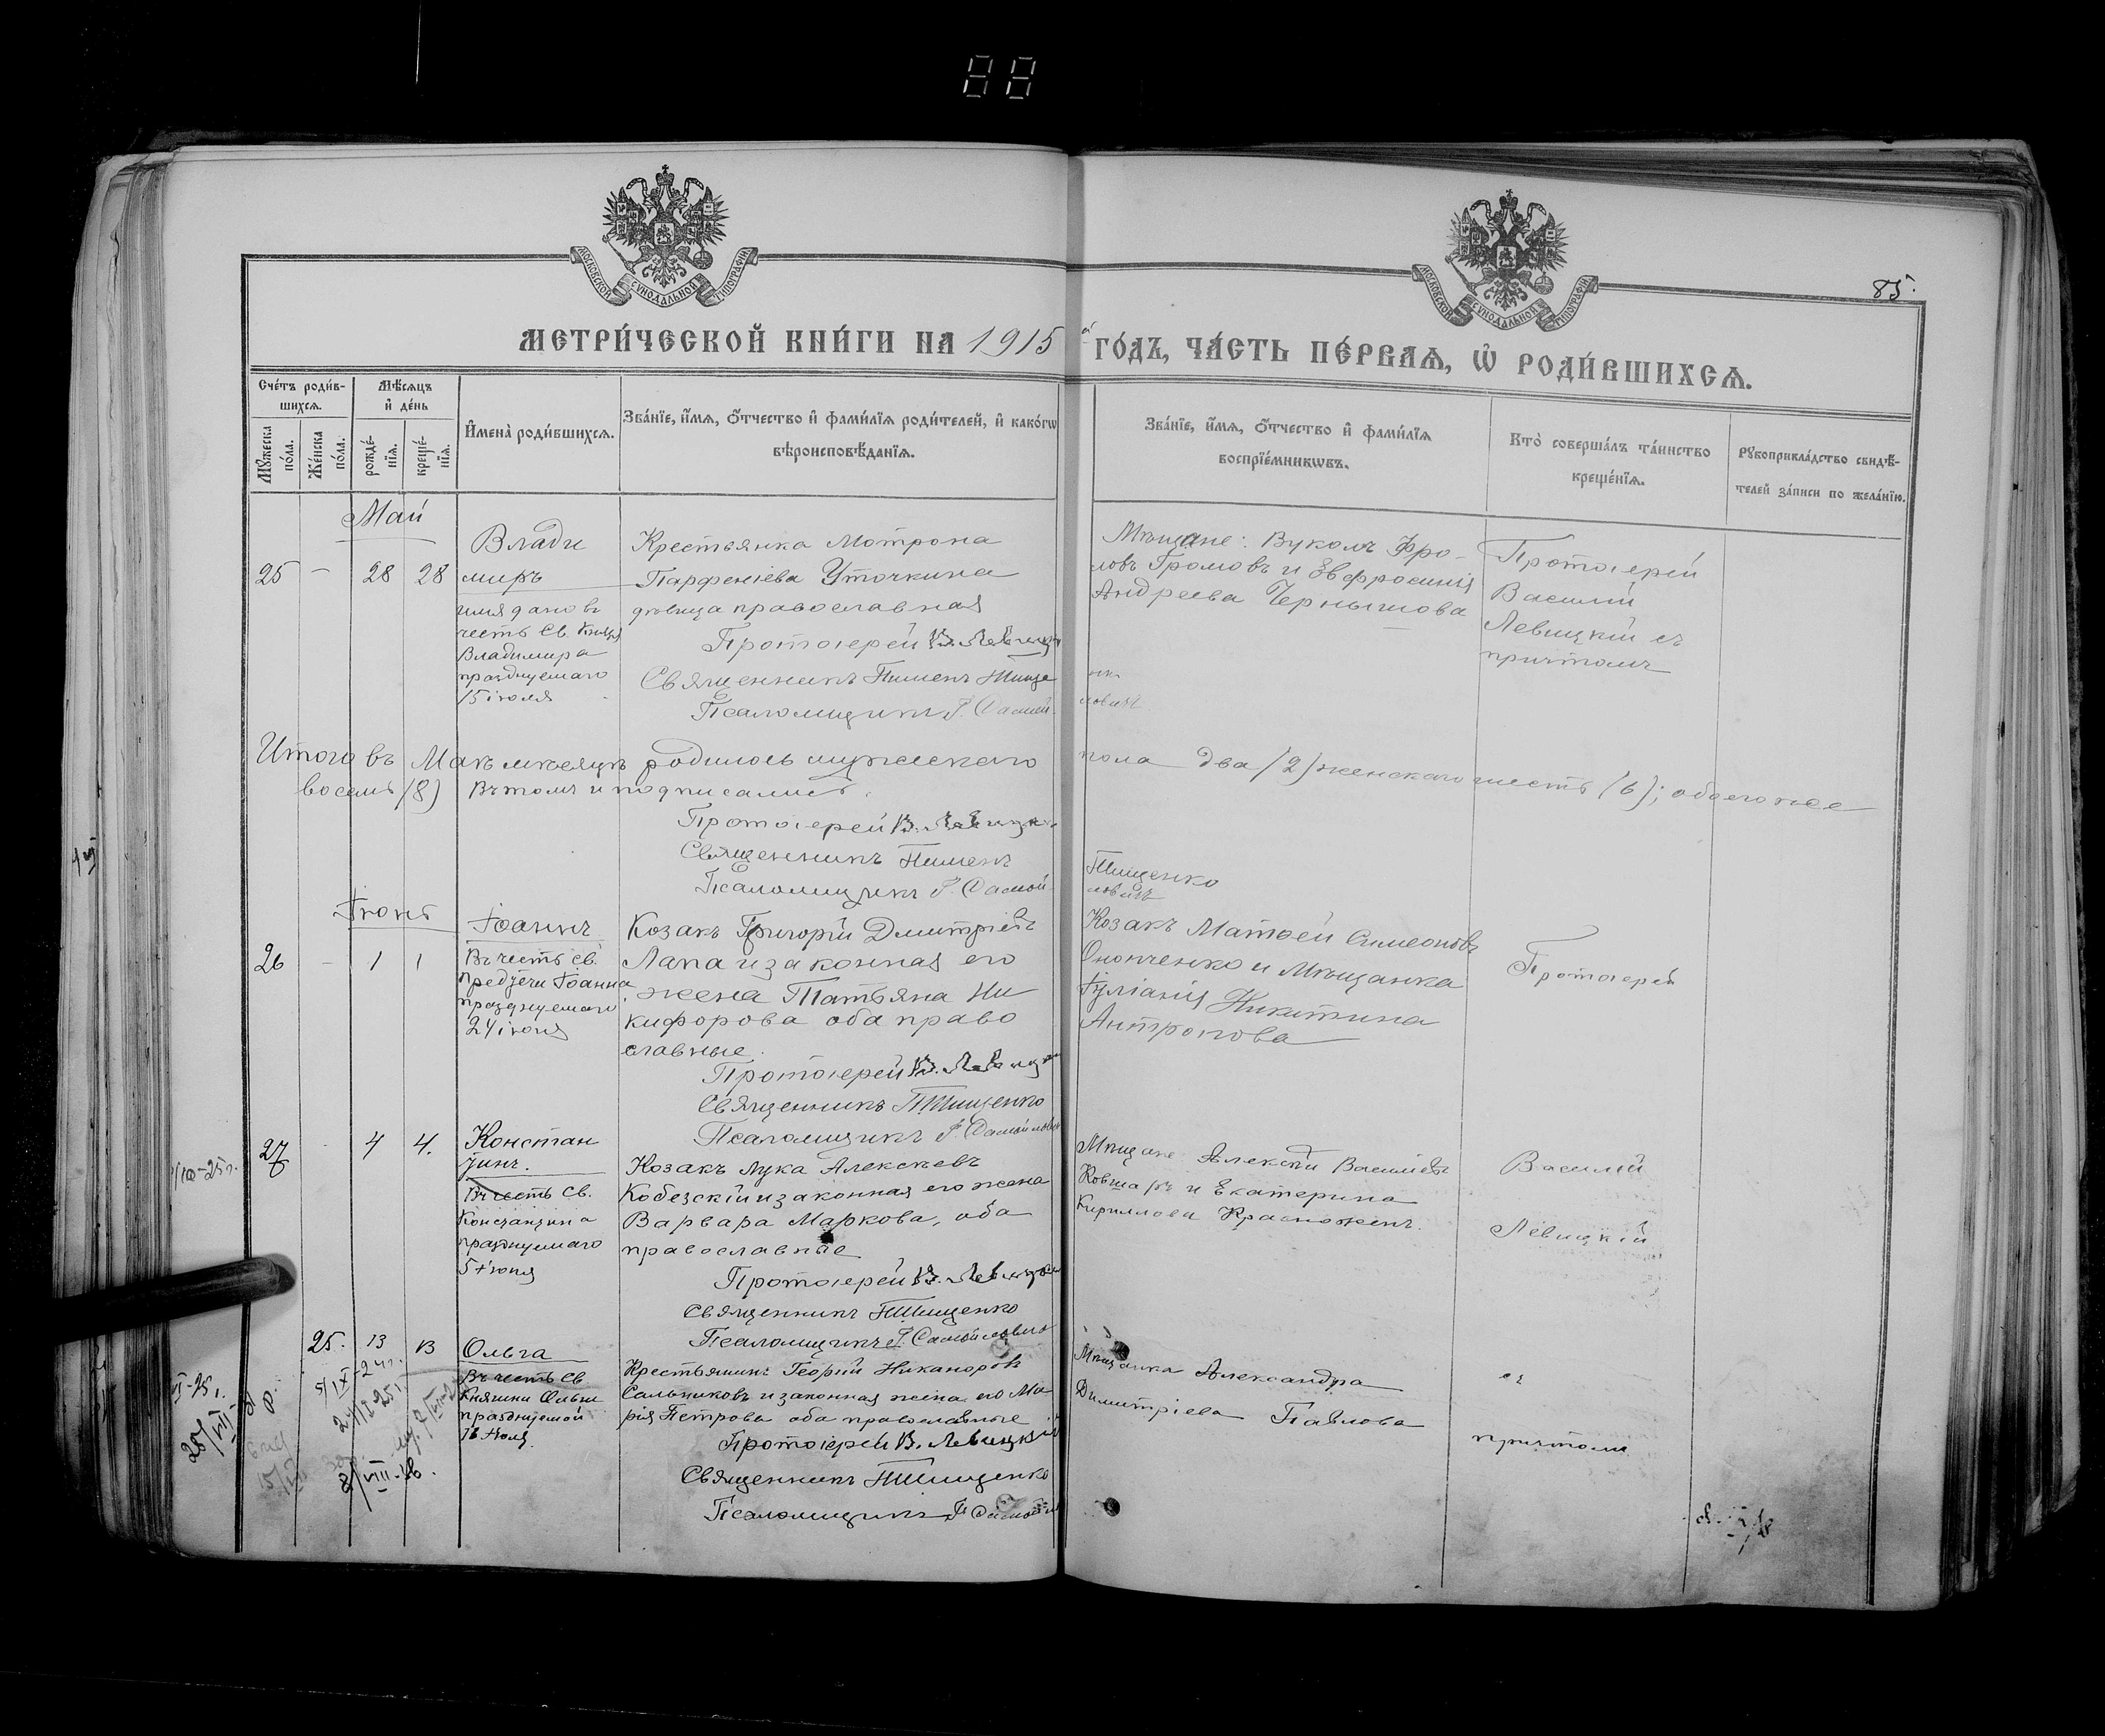 МОСКОВСКОЙ СѴНОДАЛЬНОЙ ТИПОГРАФІИ
МОСКОВСКОЙ СѴНОДАЛЬНОЙ ТИПОГРАФІИ
85.
МЕТРИ́ЧЕСКОЙ КНИ́ГИ НА 1915 ГО́ДЪ, ЧА́СТЬ ПЕ́РВАѦ, Ѡ҆ РОДИ́ВШИХСѦ.
Сче́тъ роди́в-
шихсѧ.
Мѣ́сѧцъ
и҆ де́нь
Мꙋ́жеска по́ла.
Же́нска по́ла.
рожде́-
нїѧ.
креще́-
нїѧ.
И҆мена̀ роди́вшихсѧ.
Зва́нїе, и҆́мѧ, ѻ҆́тчество и҆ фами́лїѧ роди́телей, и҆ како́гѡ
вѣроисповѣ́данїѧ.
Зва́нїе, и҆́мѧ, ѻ҆́тчество и҆ фами́лїѧ
воспрїе́мникѡвъ.
Кто̀ соверша́лъ та́инство
креще́нїѧ.
Рꙋкоприкла́дство свидѣ́-
телей за́писи по жела́нїю.
Май
25 - 28 28
Влади
миръ
имя дано въ
честь св. Князя
Владимира
празднуемаго
15 іюля
Крестьянка Мотрона
Парфеніева Уточкина
дѣвица православная
Протоіерей В. Левицкі
Священникъ Пименъ Тище
нко
Псаломщикъ Г. Самой-
ловичъ
Мѣщане: Вуколъ Фро-
ловъ Громовъ и Евфросинія
Андреева Чернышова
Протоіерей
Василій
Левицкій съ
причтомъ
Итого въ Маѣ мѣсяцѣ родилось мужескаго пола два (2) женскаго шесть (6); обоего же
восемь (8) Въ томъ и подписались.
Протоіерей В. Левицкі
Священникъ Пименъ Тищенко
Псаломщикъ Г. Самой-
ловичъ
Іюнь
26 - 1 1
Іоаннъ
Въ честь св.
Предтечи Іоанна
празднуемаго
24 іюня
Козакъ Григорій Димитріевъ
Лапа и законная его
жена Татьяна Ни
кифорова оба право
славные.
Протоіерей В. Левицкі
Священникъ П Тищенко
Псаломщикъ Г. Самойлович
Козакъ Матѳей Симеоновъ
Ононченко и Мѣщанка
Іуліанія Никитина
Антропова
Протоіерей
27 - 4 4.
Констан
тинъ.
Въ честь св.
Константина
празднуемаго
5 Іюня
Козакъ Лука Алексѣевъ
Кобезскій и законная его жена
Варвара Маркова, оба
православные
Протоіерей В. Левицкі
Священникъ П Тищенко
Псаломщикъ Г. Самойлович
Мѣщане Алексѣй Васильевъ
Ковшарь и Екатерина
Кириллова Красножонъ.
Василій
Левицкій
25. 13 13
Ольга
Въ честь Св
Княгини Ольги
празднуемой
Крестьянинъ Георгій Никаноровъ
Сальниковъ и законная жена его Ма
рія Петрова оба православные
Протоіерей В. Левицкій
Священникъ П Тищенко
Псаломщикъ Г Самойл
Мѣщанка Александра
Димитріева Павлова
съ
причтомъ
5/IX-24г.